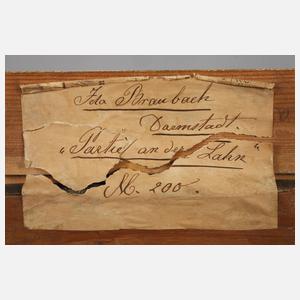 Ida Braubach
Darmstadt.
„Partie an der Lahn“
M. 200.